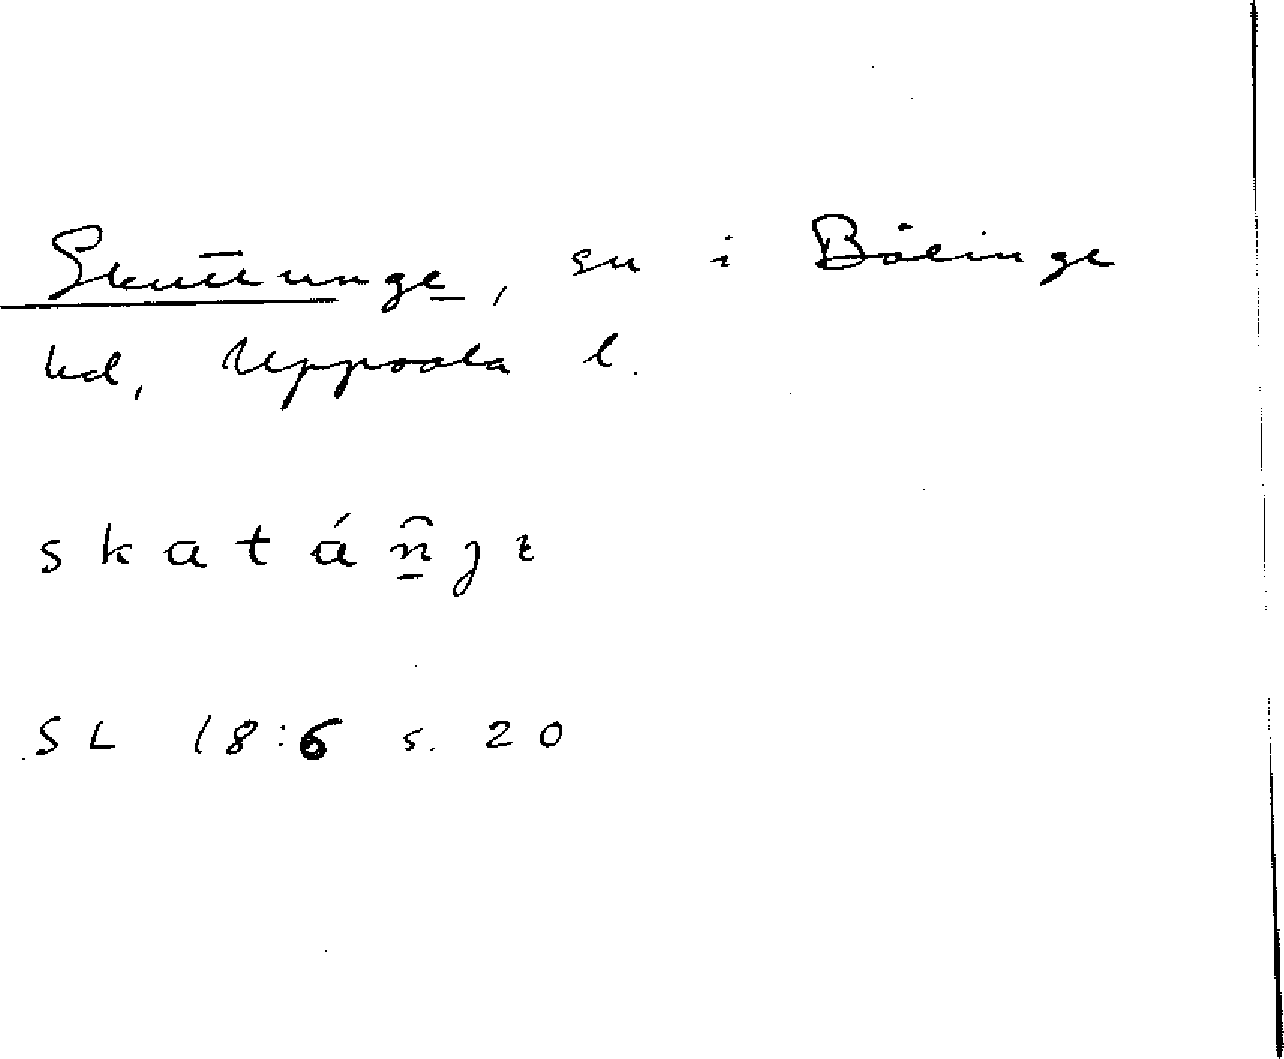 Skuttunge, sn i Bälinge
hd, Uppsala l.
skatáñ̲ȷɛ
SL 18:6 s. 20